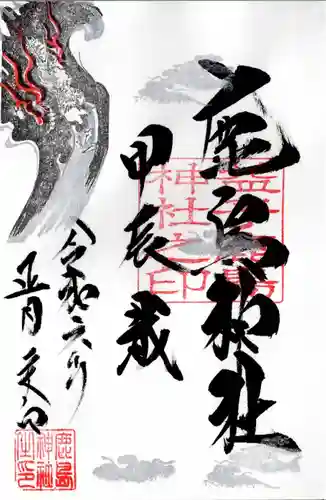 鹿島神社
甲辰歳
令和六年
正月
益子鹿島
神社之印
鹿島
神社